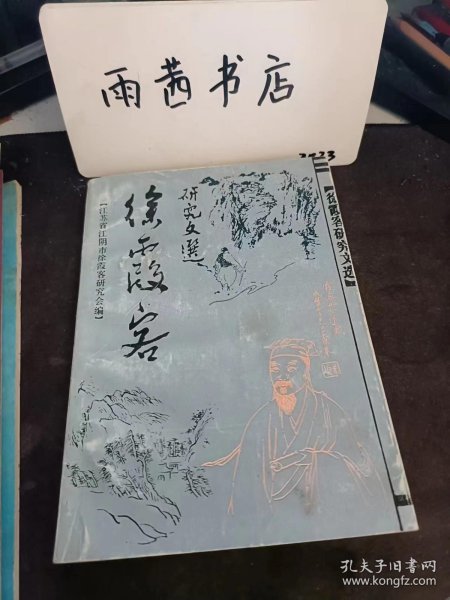 雨茜书店
徐霞客
研究文選
【江苏省江阴市徐霞客研究会编】
徐霞客研究文选
孔夫子旧书网
www.kongfz.com